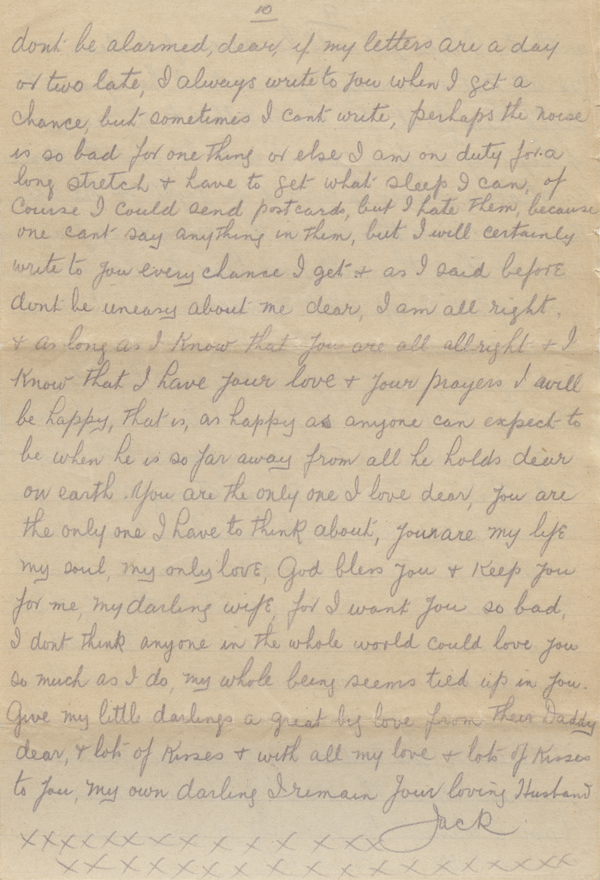 10
dont be alarmed, dear, if my letters are a day
or two late, I always write to you when I get a
chance, but sometimes I cant write, perhaps the noise
is so bad for one thing or else I am on duty for a
long stretch & have to get what sleep I can, of
course I could send postcards, but I hate them, because
one cant say anything in them, but I will certainly
write to you every chance I get & as I said before
dont be uneasy about me dear, I am all right.
& as long as I know that you are all allright & I
know that I have your love & your prayers I will
be happy, that is, as happy as anyone can expect to
be when he is so far away from all he holds dear
on earth. You are the only one I love dear, you are
the only one I have to think about, you are my life
my soul, my only love, God bless you & keep you
for me, my darling wife, for I want you so bad,
I dont think anyone in the whole world could love you
so much as I do, my whole being seems tied up in you.
Give my little darlings a great big love from their Daddy
dear, & lots of kisses & with all my love & lots of kisses
to you, my own darling I remain Your loving Husband
Jack
x x x x x x x x x x x x x x
x x x x x x x x x x x x x x x x x